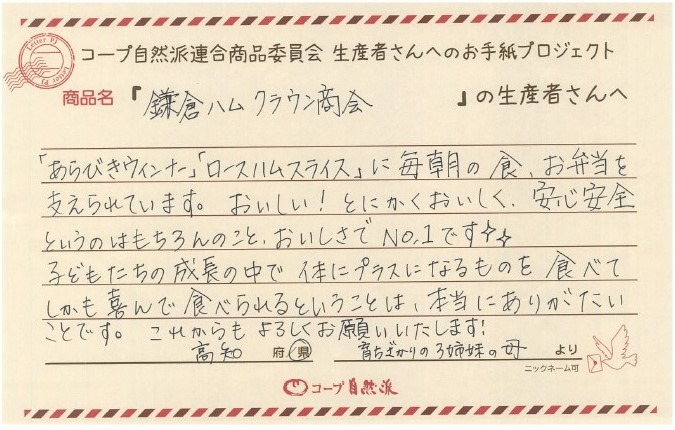 コープ自然派連合商品委員会 生産者さんへのお手紙プロジェクト
商品名『鎌倉ハム クラウン商会 』の生産者さんへ
「あらびきウィンナー」「ロースハムスライス」に毎朝の食、お弁当を
支えられています。おいしい！とにかくおいしく、安心安全
というのはもちろんのこと、おいしさでNO.1です✧✧
子どもたちの成長の中で体にプラスになるものを食べて
しかも喜んで食べられるということは、本当にありがたい
ことです。これからもよろしくお願いいたします！
高知 府/県 育ちざかりの3姉妹の母 より
ニックネーム可
コープ自然派